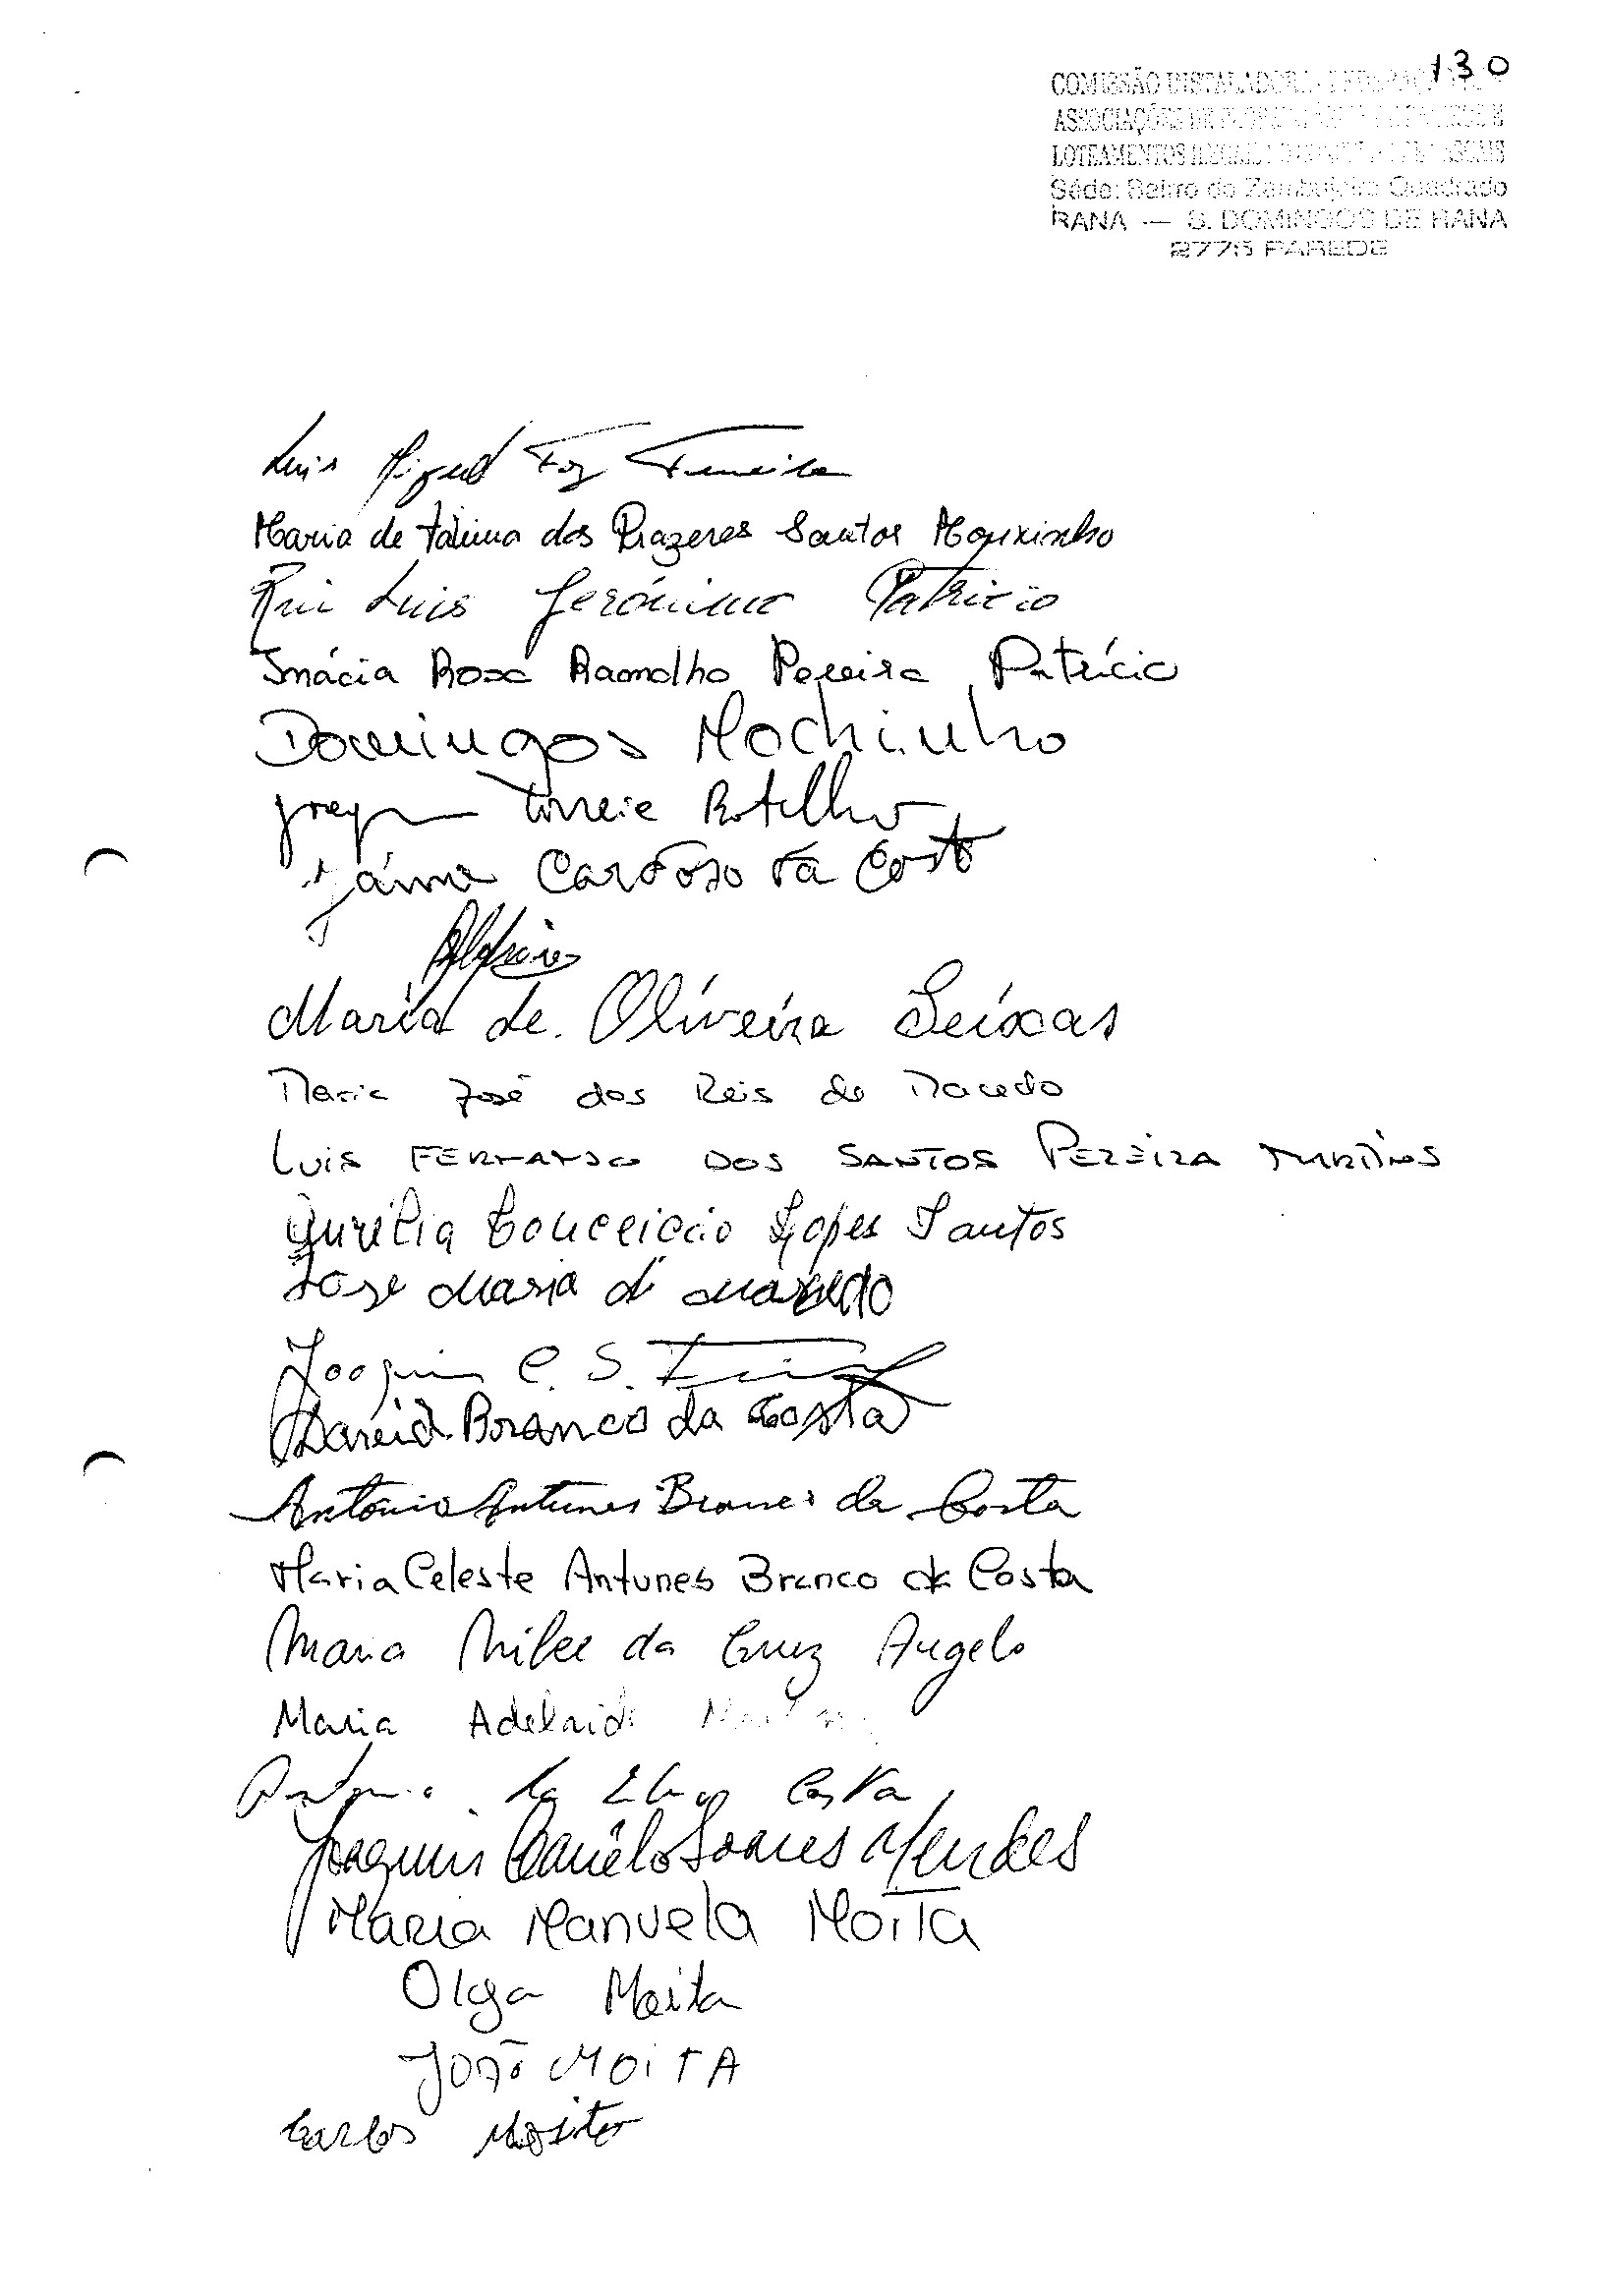 130
COMISSÃO INSTALADORA
ASSOCIAÇÕES DE
LOTEAMENTOS ILEGAIS
Séde: Bairro do Zambujeiro Quadrado
RANA — S. DOMINGOS DE RANA
2775 PAREDE
Luis Miguel Foz Ferreira
Maria de Fátima dos Prazeres Santos Mouxinho
Rui Luis Jerónimo Patricio
Inácia Rosa Ramalho Pereira Patrício
Domingos Mochinho
Correia Botelho
Cardoso da Costa
Maria de Oliveira Seixas
Maria José dos Reis de Macedo
Luis FERNANDO DOS SANTOS PEREIRA MARTINS
Aurélia Conceição Lopes Santos
José Maria de Macedo
Joaquim C. S.
Branco da Costa
António Antunes Branco da Costa
Maria Celeste Antunes Branco da Costa
Maria da Cruz Angelo
Maria Adelaide
António da Costa
Joaquim Camélo Soares Mendes
Maria Manuela Moita
Olga Moita
João MOITA
Carlos Moita